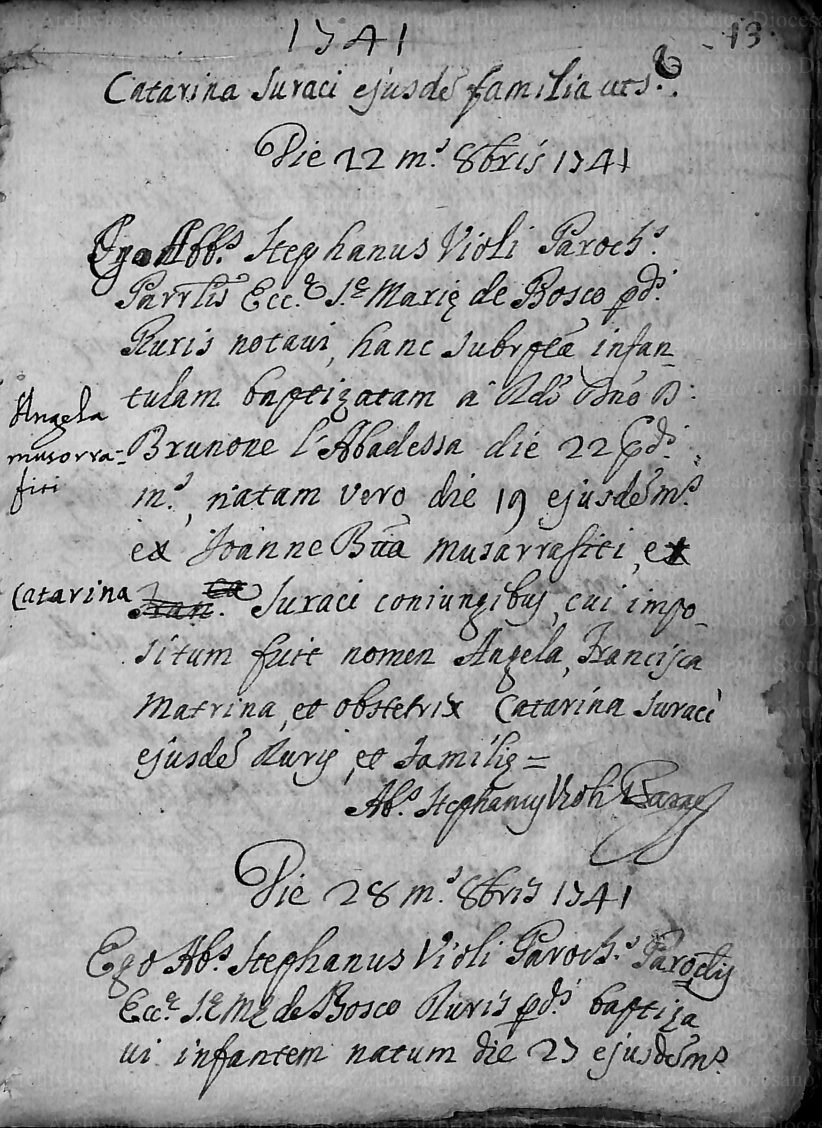 1741
13
Catarina Suraci ejusdē familia uts.ª
Die 22 m.ˢ 8bris 1741
Ego Abb.ˢ Stephanus Violi Paroch.ˢ
Parrlis Ecc.ᵉ S.ᵉ Marię de Bosco pd.ⁱ
Ruris notavi, hanc subrptā infan_
tulam baptizatam a Rdō Dnō D:
Angela
musorra-
fiti
Brunone l'Abadessa die 22 pd.ⁱ
m.ˢ, natam vero die 19 ejusdē m.ˢ
ex Joanne Btta musarrafiti, ex
Catarina
Suraci coniungibus, cui impo_
situm fuit nomen Angela, Francisca
Matrina, et obstetrix Catarina Suraci
ejusdē Ruris, et familię =
Ab.ˢ Stephanus Violi
Die 28 m.ˢ 8bris 1741
Ego Ab.ˢ Stephanus Violi Paroch.ˢ
Ecc.ᵉ S.ᵉ Mę de Bosco Ruris pd.ⁱ baptiza
ui infantem natum die 27 ejusdē m.ˢ